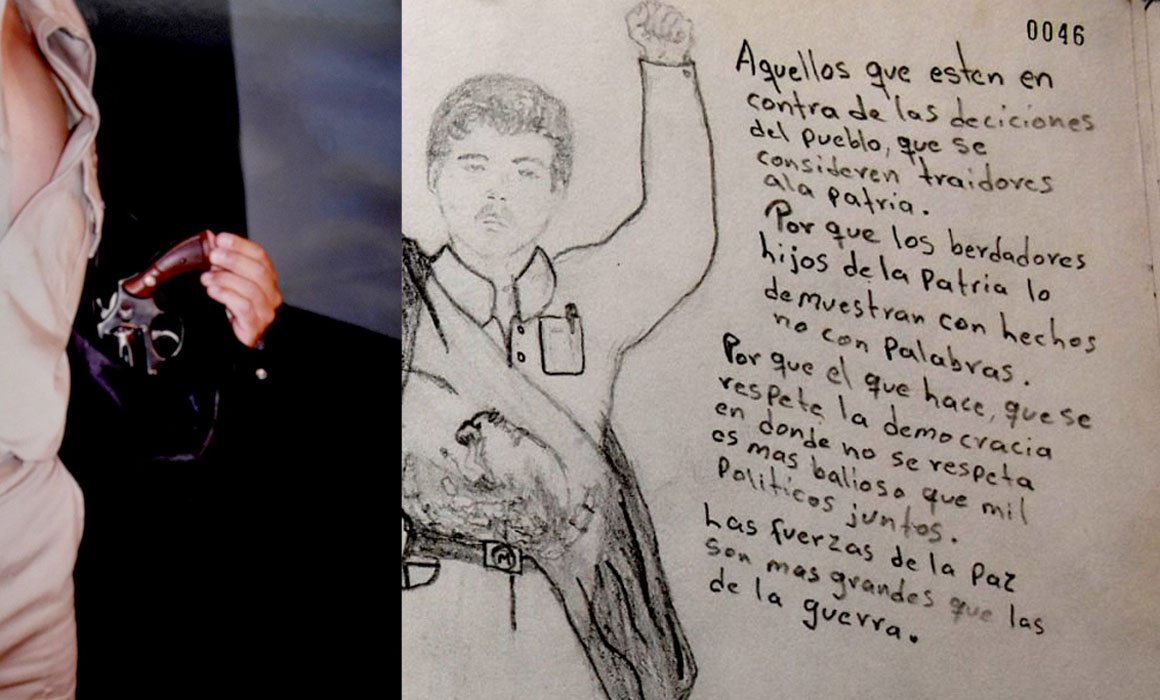 0046
Aquellos que esten en
contra de las deciciones
del pueblo, que se
consideren traidores
ala patria.
Por que los berdadores
hijos de la Patria lo
demuestran con hechos
no con Palabras.
Por que el que hace, que se
respete la democracia
en donde no se respeta
es mas balioso que mil
Politicos juntos.
Las fuerzas de la Paz
son mas grandes que las
de la guerra.